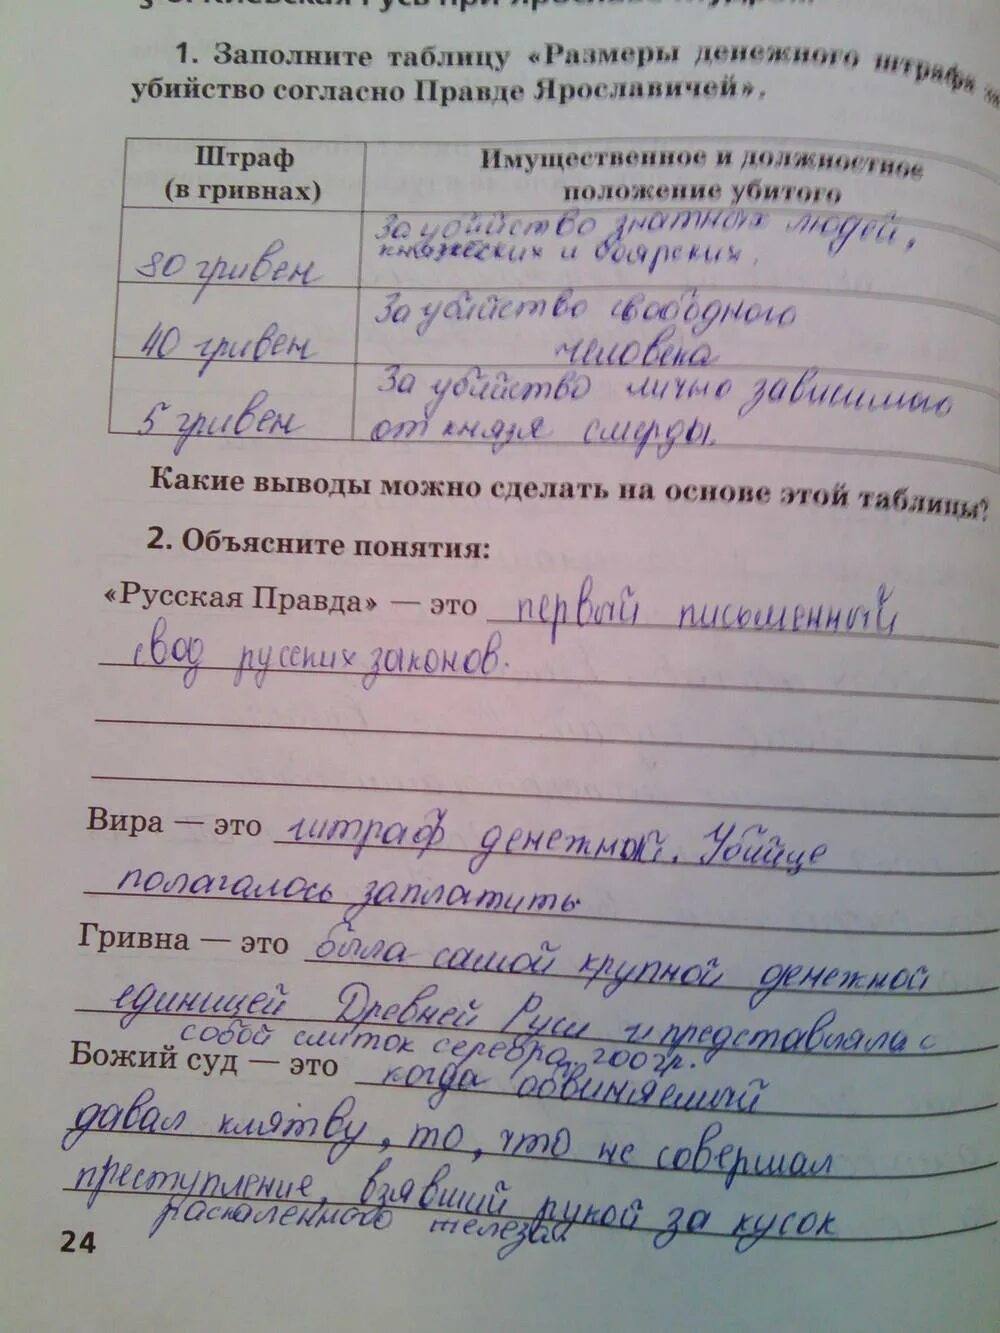 1. Заполните таблицу «Размеры денежного штрафа за
убийство согласно Правде Ярославичей».
Штраф
(в гривнах)
Имущественное и должностное
положение убитого
80 гривен
За убийство знатных людей,
княжеских и боярских.
40 гривен
За убийство свободного
человека
5 гривен
За убийство лично зависимого
от князя смерды.
Какие выводы можно сделать на основе этой таблицы?
2. Объясните понятия:
«Русская Правда» — это первый письменный
свод русских законов.
Вира — это штраф денежной. Убийце
полагалось заплатить
Гривна — это была самой крупной денежной
единицей Древней Руси и представляла с
собой слиток серебра, 200гр.
Божий суд — это когда обвиняемый
давал клятву, то, что не совершал
преступление, взявший рукой за кусок
раскаленного железа
24